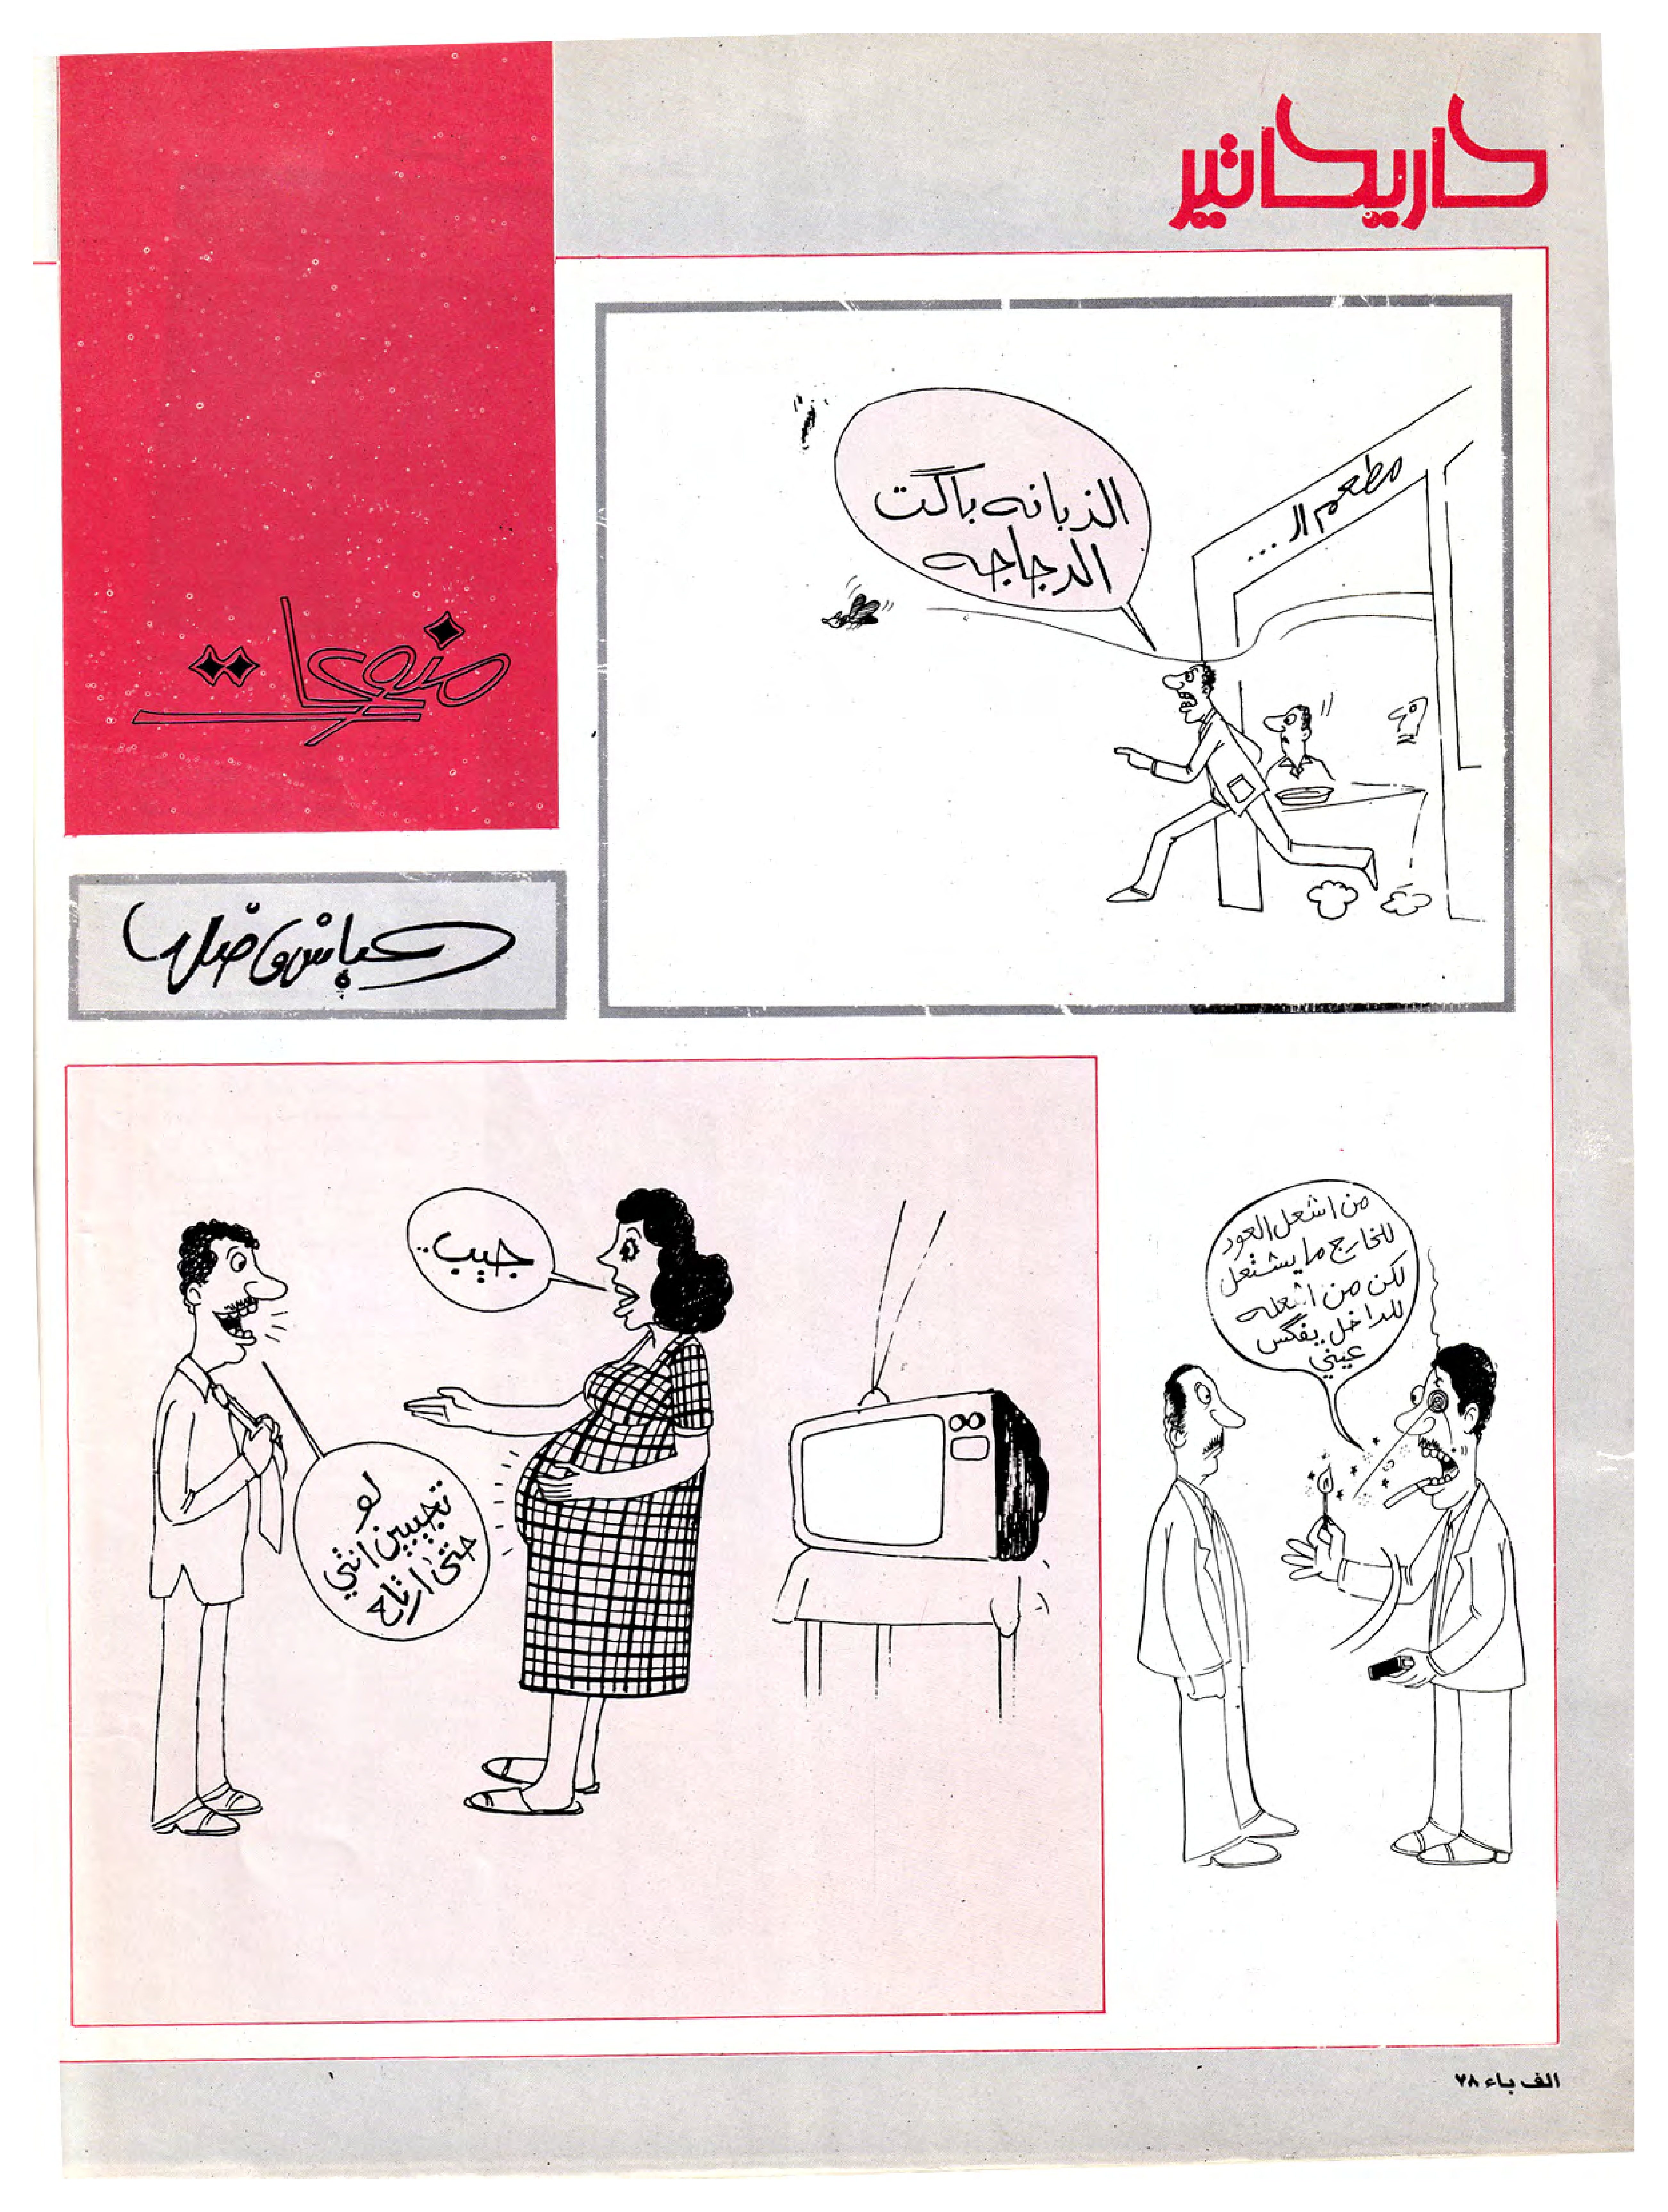 كاريكاتير
منوعات
عباس فاضل
مطعم الـ ...
الذبانه باگت
الدجاجه
جيب..
لو
تجيبين انثي
حتى ارتاح
من اشعل العود
للخارج ما يشتعل
لكن من اشعله
للداخل يفگس
عيني
الف باء ٧٨